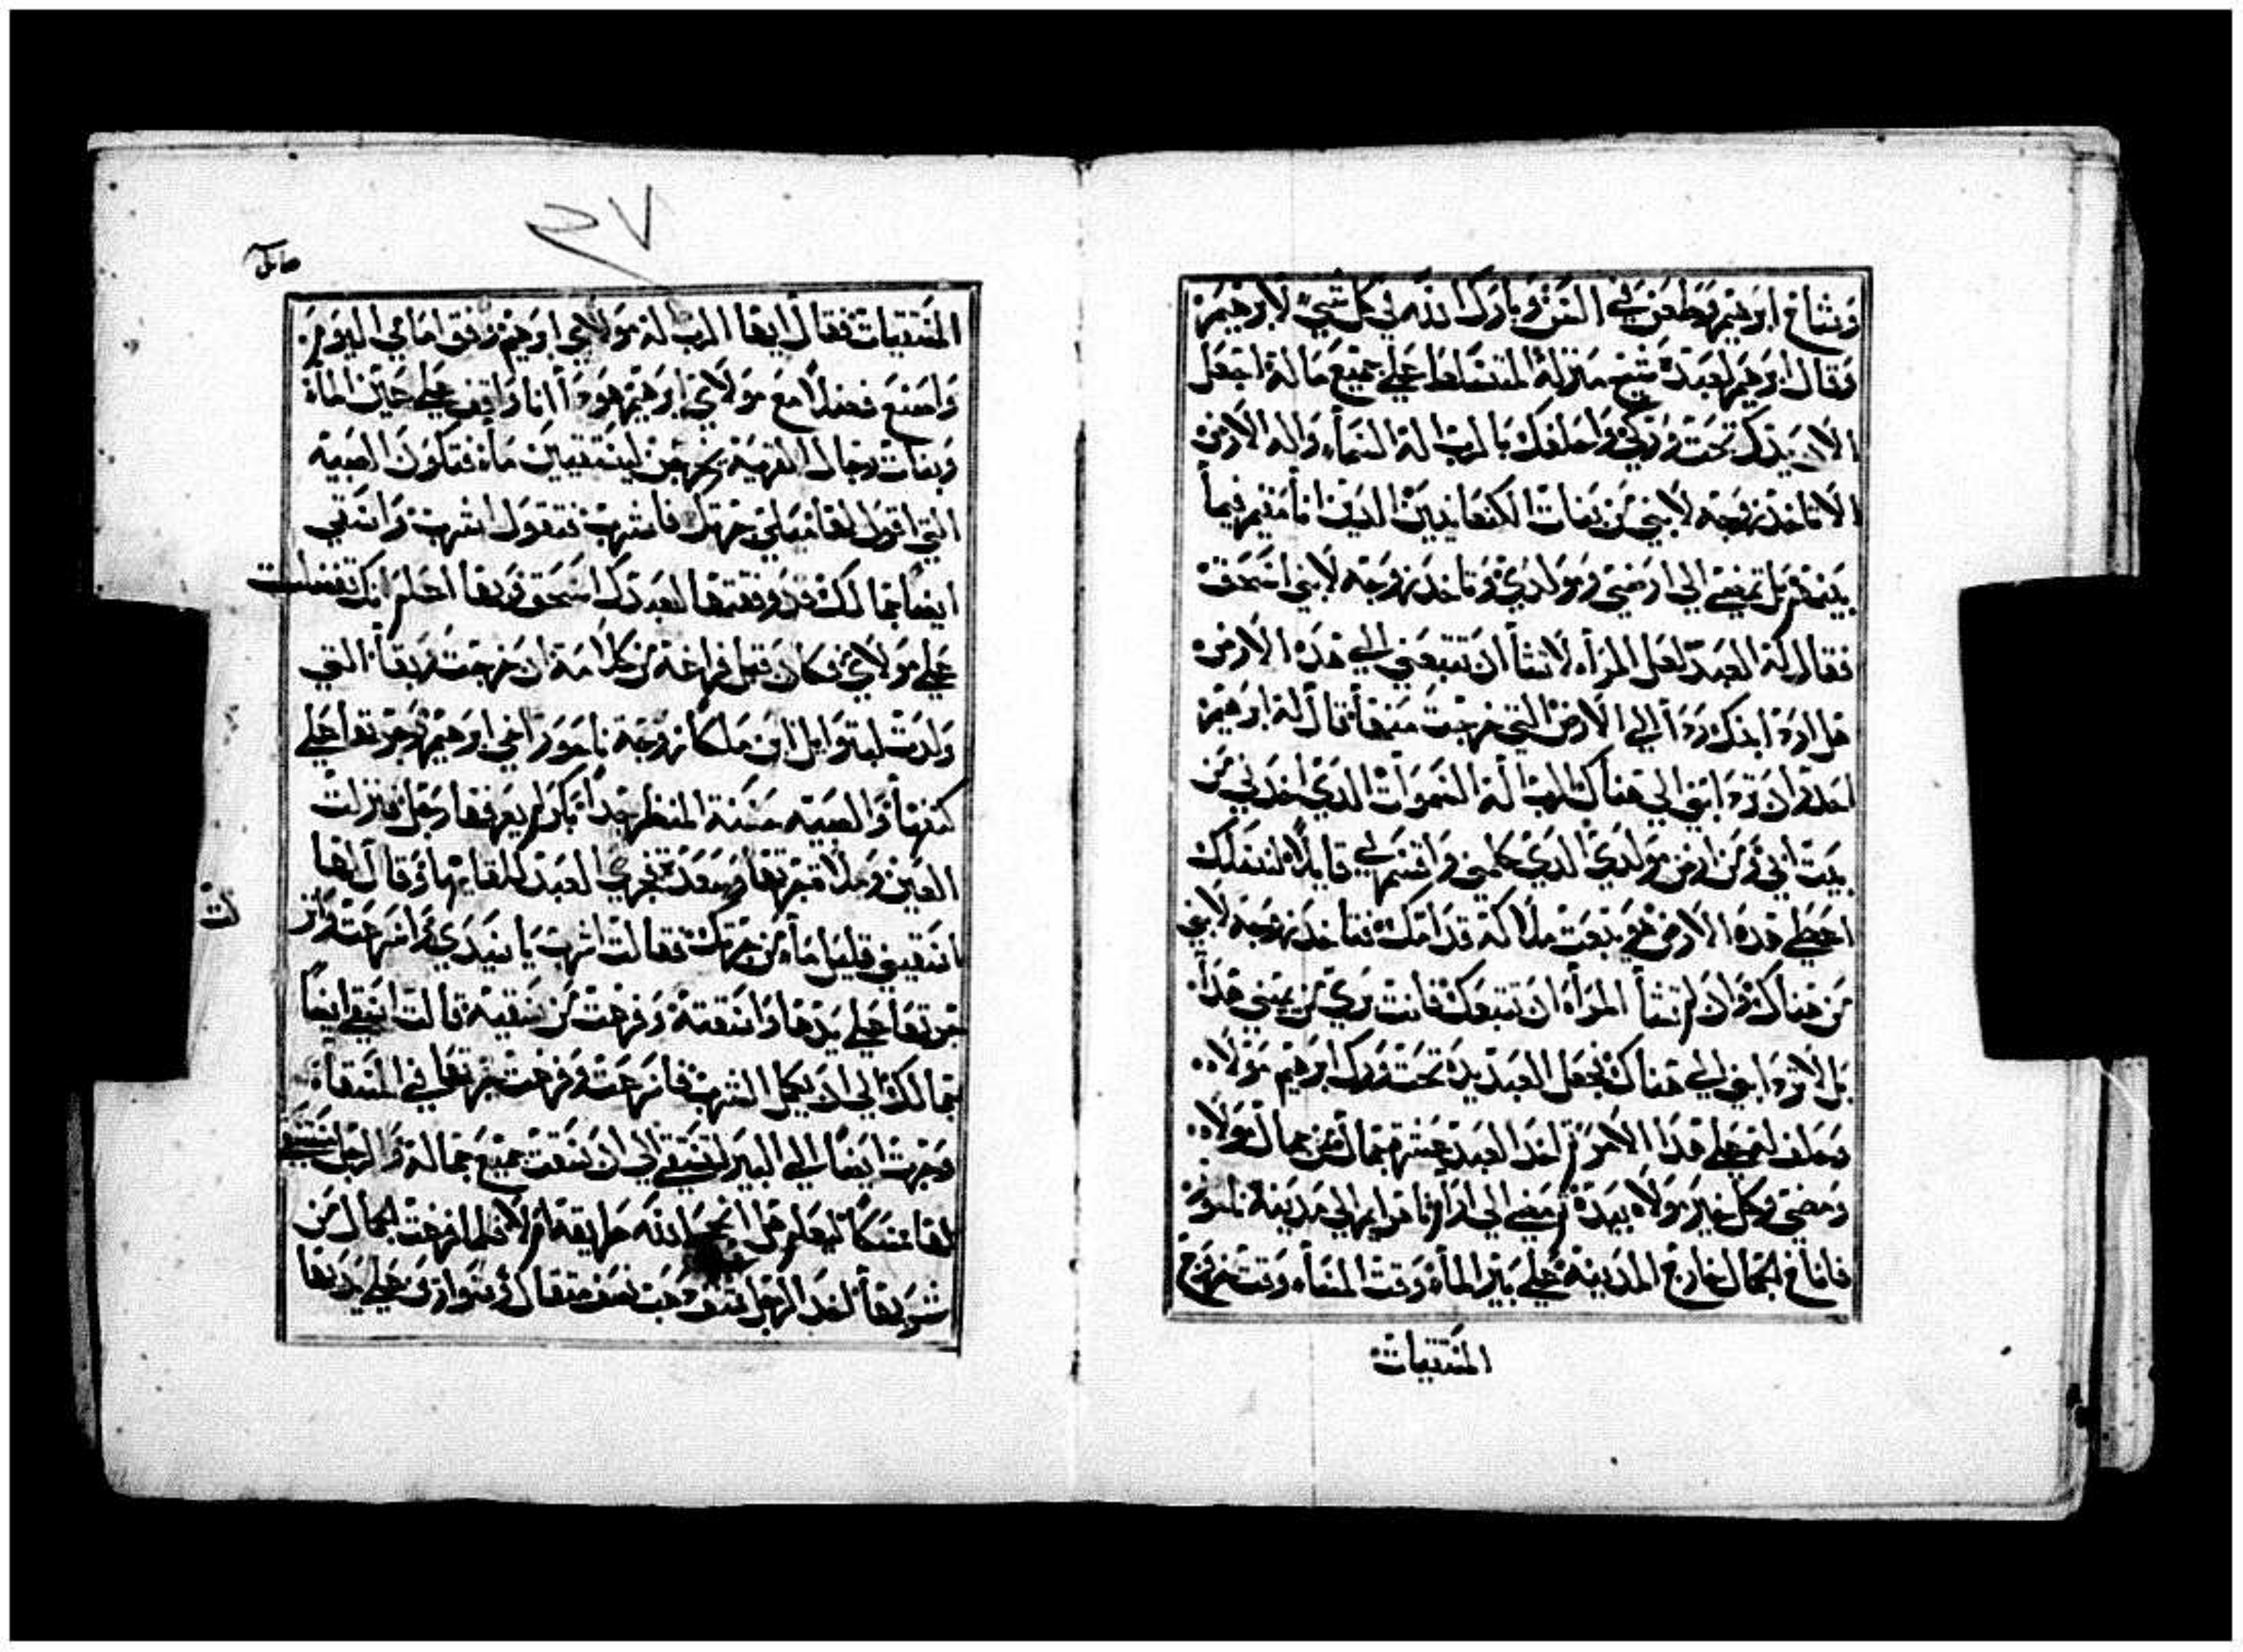 وشاخ ابرهيم وطعن في السن وبارك الله في كل شي لابرهيم
وقال ابرهيم لعبده شيخ منزله المتسلط علي جميع ماله اجعل
الان يدك تحت وركي واحلفك بالرب اله السماء واله الارض
الا تاخد زوجه لابني من بنات الكنعانيين الدين انا مقيم فيما
بينهم بل تمضي الي ارضي ومولدي وتاخد زوجه لابني اسحق
فقال له العبد لعل المراه لا تشا ان تتبعني الي هده الارض
هل ارد ابنك ردا الي الارض التي خرجت منها قال له ابرهيم
احدر ان ترد ابني الي هناك الرب اله السموات الدي اخدني من
بيت ابي ومن ارض مولدي الدي كلمني واقسم لي قايلا لنسلك
اعطي هده الارض هو يبعت ملاكه قدامك فتاخد زوجه لابني
من هناك وان لم تشا المراه ان تتبعك فانت بري من يميني هدا
بل لا ترد ابني الي هناك فجعل العبد يده تحت ورك ابرهيم مولاه
وحلف له علي هدا الامر تم اخد العبد عشره جمال من جمال مولاه
ومضي وكل خير مولاه بيده تم مضي الي ارام ناهرايم الي مدينة ناحور
فاناخ الجمال خارج المدينه علي بير الماء وقت المساء وقت خروج
المستقيات
المستقيات فقال ايها الرب اله مولاي ابرهيم وفق امامي اليوم
واصنع فضلا مع مولاي ابرهيم هودا انا واقف علي عين الماء
وبنات رجال القريه يخرجن ليستقين ماء فتكون الصبيه
التي اقول لها ميلي جرتك فاشرب فتقول اشرب واسقي
ايضا جمالك قد وفقتها لعبدك اسحق وبها اعلم انك تفضلت
علي مولاي فكان قبل فراغه من كلامه ان خرجت ربقا التي
ولدت لبتوايل ابن ملكا زوجة ناحور اخي ابرهيم وجرتها علي
كتفها والصبيه حسنة المنظر جدا بكر لم يعرفها رجل فنزلت
العين وملات جرتها وصعدت فجري العبد للقايها وقال لها
اسقيني قليل ماء من جرتك فقالت اشرب يا سيدي واسرعت وانز
لت
جرتها علي يدها واسقته وفرغت من سقيه قالت اسقي ايضا
جمالك الي ان يكمل الشرب فاسرعت وفرغت جرتها في المسقاه
وجرت ايضا الي البير لتستقي الي ان سقت جميع جماله والرجل
لها ممسكا ليعلم هل انجح الله طريقه ام لا فلما فرغت الجمال من
شربها اخد الرجل شنف دهب نصف متقال وسوارين علي يديها